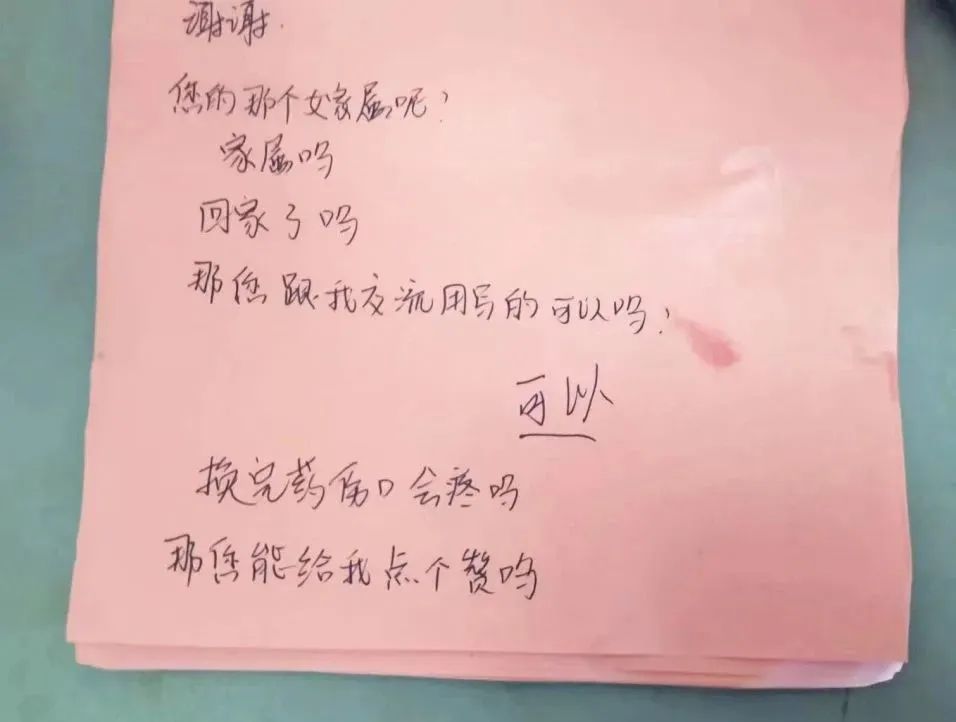 谢谢.
您的那个女家属呢？
家属吗
回家了吗
那您跟我交流用写的可以吗？
可以
换完药伤口会疼吗
那您能给我点个赞吗